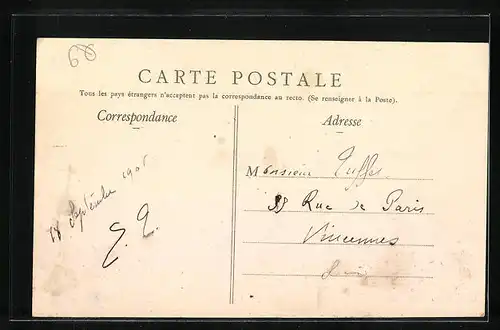 68
CARTE POSTALE
Tous les pays étrangers n'acceptent pas la correspondance au recto. (Se renseigner à la Poste).
Correspondance
Adresse
Septembre
Monsieur
Rue de Paris
Vincennes